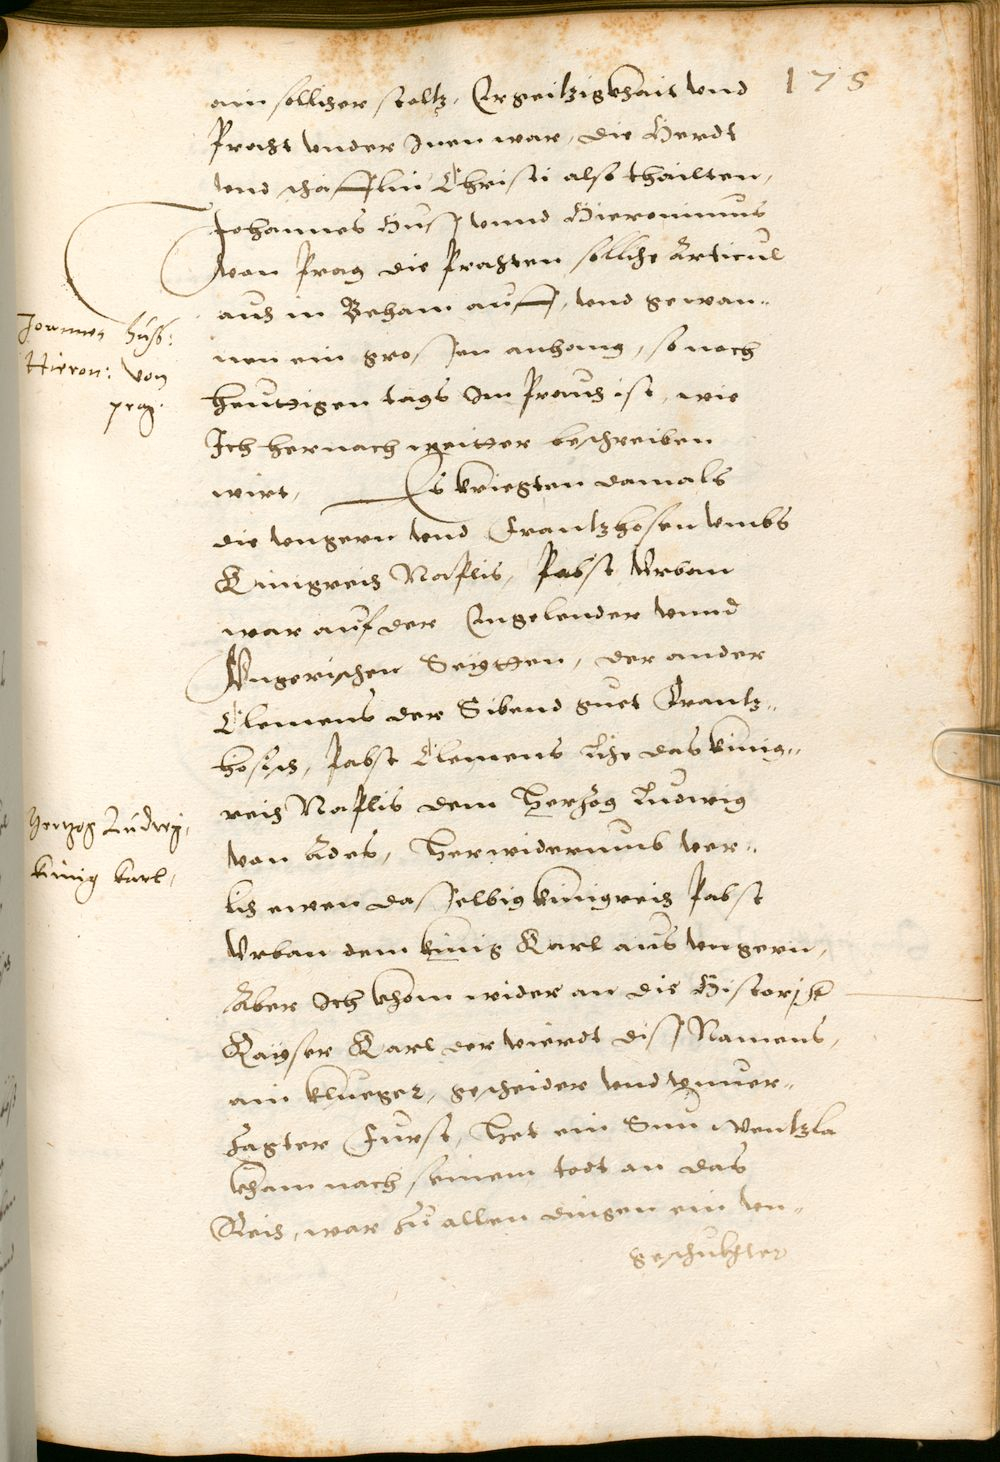 175
ain sollicher stoltz, Ergeitzigkhait vnd
Pracht vnder Inen war, die Herdt
vnd schäfflin Christi also thailten,
Johannes Huss vnnd Hieronimus
von Prag die prachten solliche Articul
auch in Beham auff, vnd gewan-
nen ein grossen anhang, so noch
heuttigen tags Im prauch ist, wie
Ich hernach weitter beschreiben
wirt, Es kriegten damals
die vngern vnd Frantzhosen vmbs
Künigreich Naplis, Pabst Vrban
war auf der Engelender vnnd
Vngerischen Seytten, der ander
Clemens der Sibend guet Frantz-
hosisch, Pabst Clemens lihe das künig-
reich Naplis dem Hertzog Ludwig
von Ades, Herwiderumb ver-
lich ewen dasselbig künigreich Pabst
Vrban dem künig Karl aus vngern,
Aber Ich khom wider an die Historien
Kayser Karl der vierdt diss Namens,
ain kluoger, gescheider vnd vnuer-
zagter Furst, Het ein Sun Wentzla
kham nach seinem todt an das
Reich, war zu allen dingen ein vn-
geschickhter
Joannes Huss:
Hieron: von
prag.
Hertzog Ludwig,
künig karl,